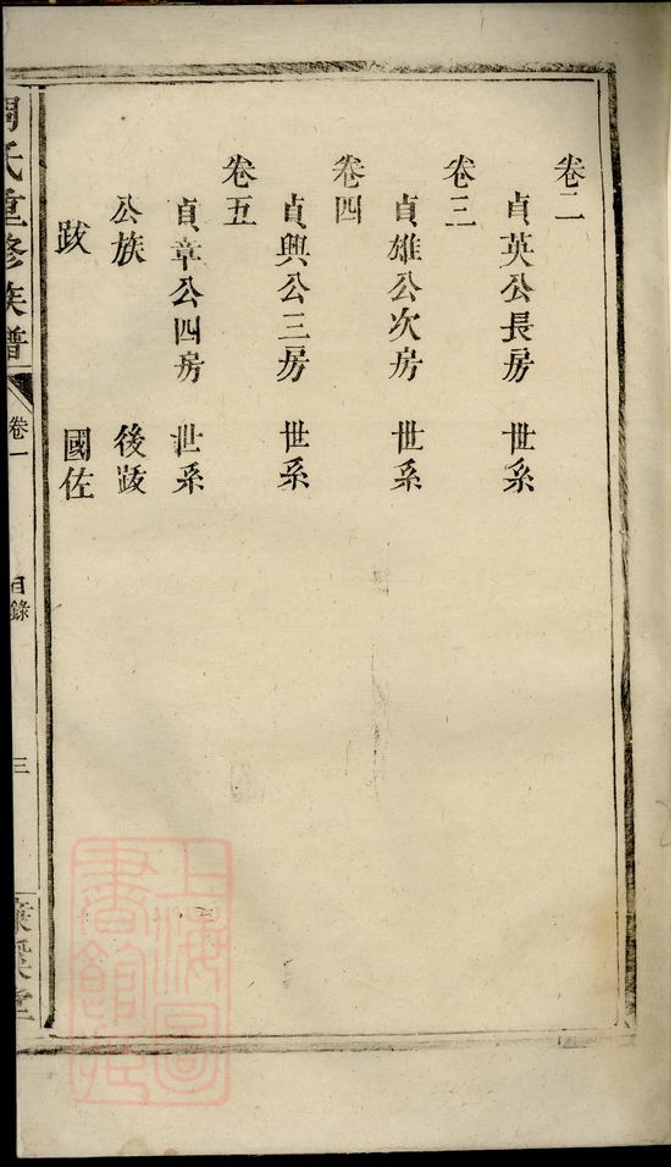 卷二
貞英公長房 世系
卷三
貞雄公次房 世系
卷四
貞興公三房 世系
卷五
貞章公四房 世系
公族 後跋
跋 國佐
周氏重修族譜 卷一 目錄 三
上海圖書館藏